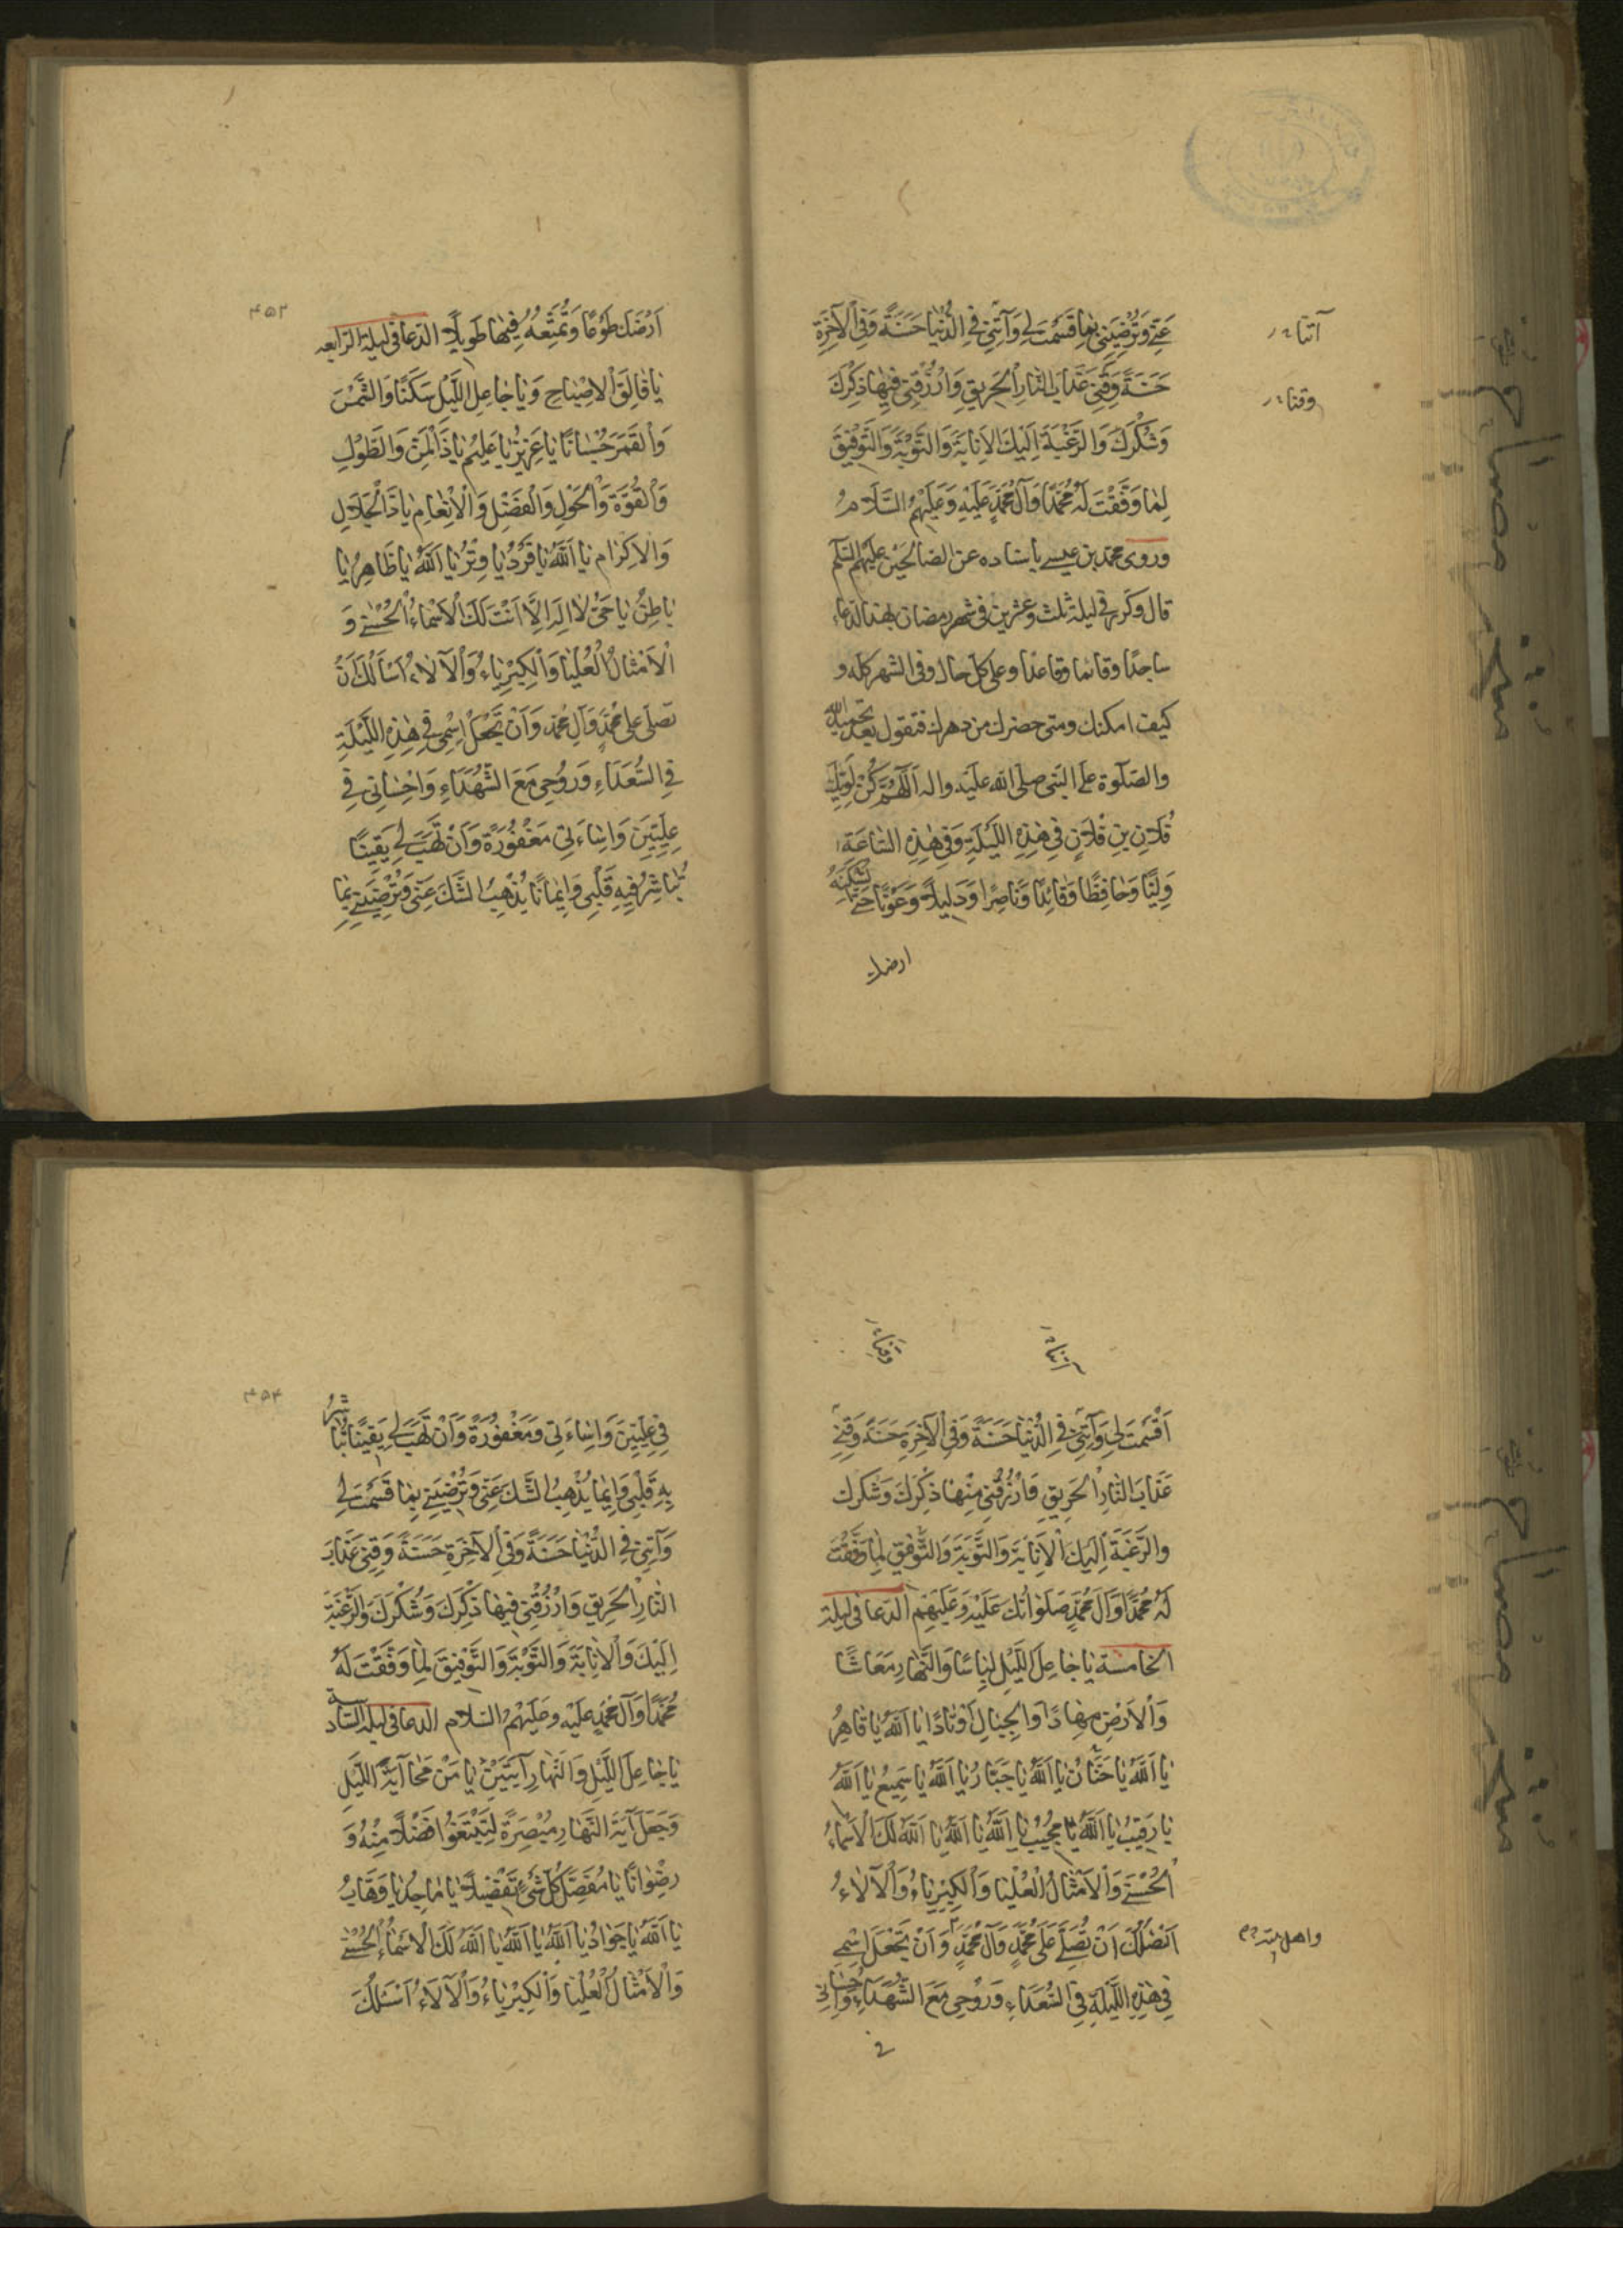 عَنّي وَتُرْضِيَني بِمَا قَسَمْتَ لي وَآتِني فِي الدُّنْيَا حَسَنَةً وَفِي الْآخِرَةِ
حَسَنَةً وَقِني عَذَابَ النَّارِ الْحَرِيقِ وَارْزُقْني فِيهَا ذِكْرَكَ
وَشُكْرَكَ وَالرَّغْبَةَ اِلَيْكَ الْاِنَابَةَ وَالتَّوْبَةَ وَالتَّوْفِيقَ
لِمَا وَفَّقْتَ لَهُ مُحَمَّدًا وَآلَ مُحَمَّدٍ عَلَيْهِ وَعَلَيْهِمُ السَّلَامُ
وروى محمد بن عيسى باسناده عن الصالحين عليهم السلم
قال وكرر في ليلة ثلث وعشرين في شهر رمضان بهذا الدعاء
ساجدًا وقائما وقاعدًا وعلى كل حال وفي الشهر كله و
كيف امكنك ومتى حضرك من دهرك فتقول بعد تحميد الله
والصلوة على النبي صلى الله عليه واله اَللّهُمَّ كُنْ لِوَلِيِّكَ
فُلَانِ بنِ فُلَانٍ فِي هٰذِهِ اللَّيْلَةِ وَفِي هٰذِهِ السَّاعَةِ
وَلِيًّا وَحَافِظًا وَقَائِدًا وَنَاصِرًا وَدَلِيلًا وَعَوْنًا حَتّى تُسْكِنَهُ
ارضك
آتنا
وقنا
۴۵۳
اَرْضَكَ طَوْعًا وَتُمَتِّعَهُ فِيهَا طَوِيلًا الدعا في ليلة الرابعه
يَا فَالِقَ الْاِصْبَاحِ وَيَا جَاعِلَ اللَّيْلِ سَكَنًا وَالشَّمْسَ
وَالْقَمَرَ حُسْبَانًا يَا عَزِيزُ يَا عَلِيمُ يَا ذَا الْمَنِّ وَالطَّوْلِ
وَالْقُوَّةِ وَالْحَوْلِ وَالْفَضْلِ وَالْاِنْعَامِ يَا ذَا الْجَلَالِ
وَالْاِكْرَامِ يَا اَللّهُ يَا فَرْدُ يَا وِتْرُ يَا اَللّهُ يَا ظَاهِرُ يَا
بَاطِنُ يَا حَيُّ لَا اِلهَ اِلَّا اَنْتَ لَكَ الْاَسْمَاءُ الْحُسْنى وَ
الْاَمْثَالُ الْعُلْيَا وَالْكِبْرِيَاءُ وَالْآلَاءُ اَسْاَلُكَ اَنْ
تصلى على مُحَمَّدٍ وَآلِ مُحَمَّد وَاَنْ تَجْعَلَ اِسْمِي فِي هٰذِهِ اللَّيْلَةِ
فِي السُّعَدَاءِ وَرُوحِي مَعَ الشُّهَدَاءِ وَاِحْسَاني فِي
عِلِّيِّينَ وَاِسَاءَتِي مَغْفُورَةً وَاَنْ تَهَبَ لي يَقِينًا
تُبَاشِرُ فِيهِ قَلْبِي وَاِيمَانًا يُذْهِبُ الشَّكَّ عَنّي وَتُرْضِيَني بِمَا
اَقْسَمْتَ لي وَآتِني فِي الدُّنْيَا حَسَنَةً وَفِي الْآخِرَةِ حَسَنَةً وَقِني
عَذَابَ النَّارِ الْحَرِيقِ فَارْزُقْني مِنْهَا ذِكْرَكَ وَشُكْرَكَ
والرَّغْبَةَ اِلَيْكَ الْاِنَابَةَ وَالتَّوْبَةَ وَالتَّوْفِيقَ لِمَا وَفَّقْتَ
لَهُ مُحَمَّدًا وَآلَ مُحَمَّدٍ صَلَوَاتُكَ عَلَيْهِ وَعَلَيْهِمْ الدعا في ليلة
الخامسة يَا جَاعِلَ اللَّيْلِ لِبَاسًا وَالنَّهَارِ مَعَاشًا
وَالْاَرْضِ مِهَادًا وَالْجِبَالِ اَوْتَادًا يَا اَللّهُ يَا قَاهِرُ
يَا اَللّهُ يَا حَنَّانُ يَا اَللّهُ يَا جَبَّارُ يَا اَللّهُ يَا سَمِيعُ يَا اَللّهُ
يَا رَقِيبُ يَا اَللّهُ يَا مُجِيبُ يَا اَللّهُ يَا اَللّهُ يَا اَللّهُ لَكَ الْاَسْمَاءُ
الْحُسْنى وَالْاَمْثَالُ الْعُلْيَا وَالْكِبْرِيَاءُ وَالْآلَاءُ
اَسْئَلُكَ اَنْ تُصَلِّيَ عَلى مُحَمَّدٍ وَآلِ مُحَمَّدٍ وَاَنْ تَجْعَلَ اِسْمِي
فِي هٰذِهِ اللَّيْلَةِ فِي السُّعَدَاءِ وَرُوحِي مَعَ الشُّهَدَاءِ وَاِحْسَانِي
في
واهل بيته
۴۵۴
فِي عِلِّيِّينَ وَاِسَاءَتِي وَمَغْفُورَةً وَاَنْ تَهَبَ لي يَقِينًا تُبَاشِرُ
بِهِ قَلْبِي وَاِيمَا يُذْهِبُ الشَّكَّ عَنّي وَتُرْضِيَني بِمَا قَسَمْتَ لي
وَآتِني فِي الدُّنْيَا حَسَنَةً وَفِي الْآخِرَةِ حَسَنَةً وَقِني عَذَابَ
النَّارِ الْحَرِيقِ وَارْزُقْني فِيهَا ذِكْرَكَ وَشُكْرَكَ وَالرَّغْبَةَ
اِلَيْكَ وَالْاِنَابَةَ وَالتَّوْبَةَ وَالتَّوْفِيقَ لِمَا وَفَّقْتَ لَهُ
مُحَمَّدًا وَآلَ مُحَمَّدٍ عَلَيْهِ وَعَلَيْهِمُ السَّلَام الدعا في ليلة السادسة
يَا جَاعِلَ اللَّيْلِ وَالنَّهَارِ آيَتَيْنِ يَا مَنْ مَحَا آيَةَ اللَّيْلِ
وَجَعَلَ آيَةَ النَّهَارِ مُبْصِرَةً لِتَبْتَغُوا فَضْلًا مِنْهُ وَ
رِضْوَانًا يَا مُفَصِّلَ كُلِّ شَيْءٍ تَفْضِيلًا يَا مَاجِدُ يَا وَهَّابُ
يَا اَللّهُ يَا جَوَادُ يَا اَللّهُ يَا اَللّهُ يَا اَللّهُ لَكَ الْاَسْمَاءُ الْحُسْنى
وَالْاَمْثَالُ الْعُلْيَا وَالْكِبْرِيَاءُ وَالْآلَاءُ اَسْئَلُكَ